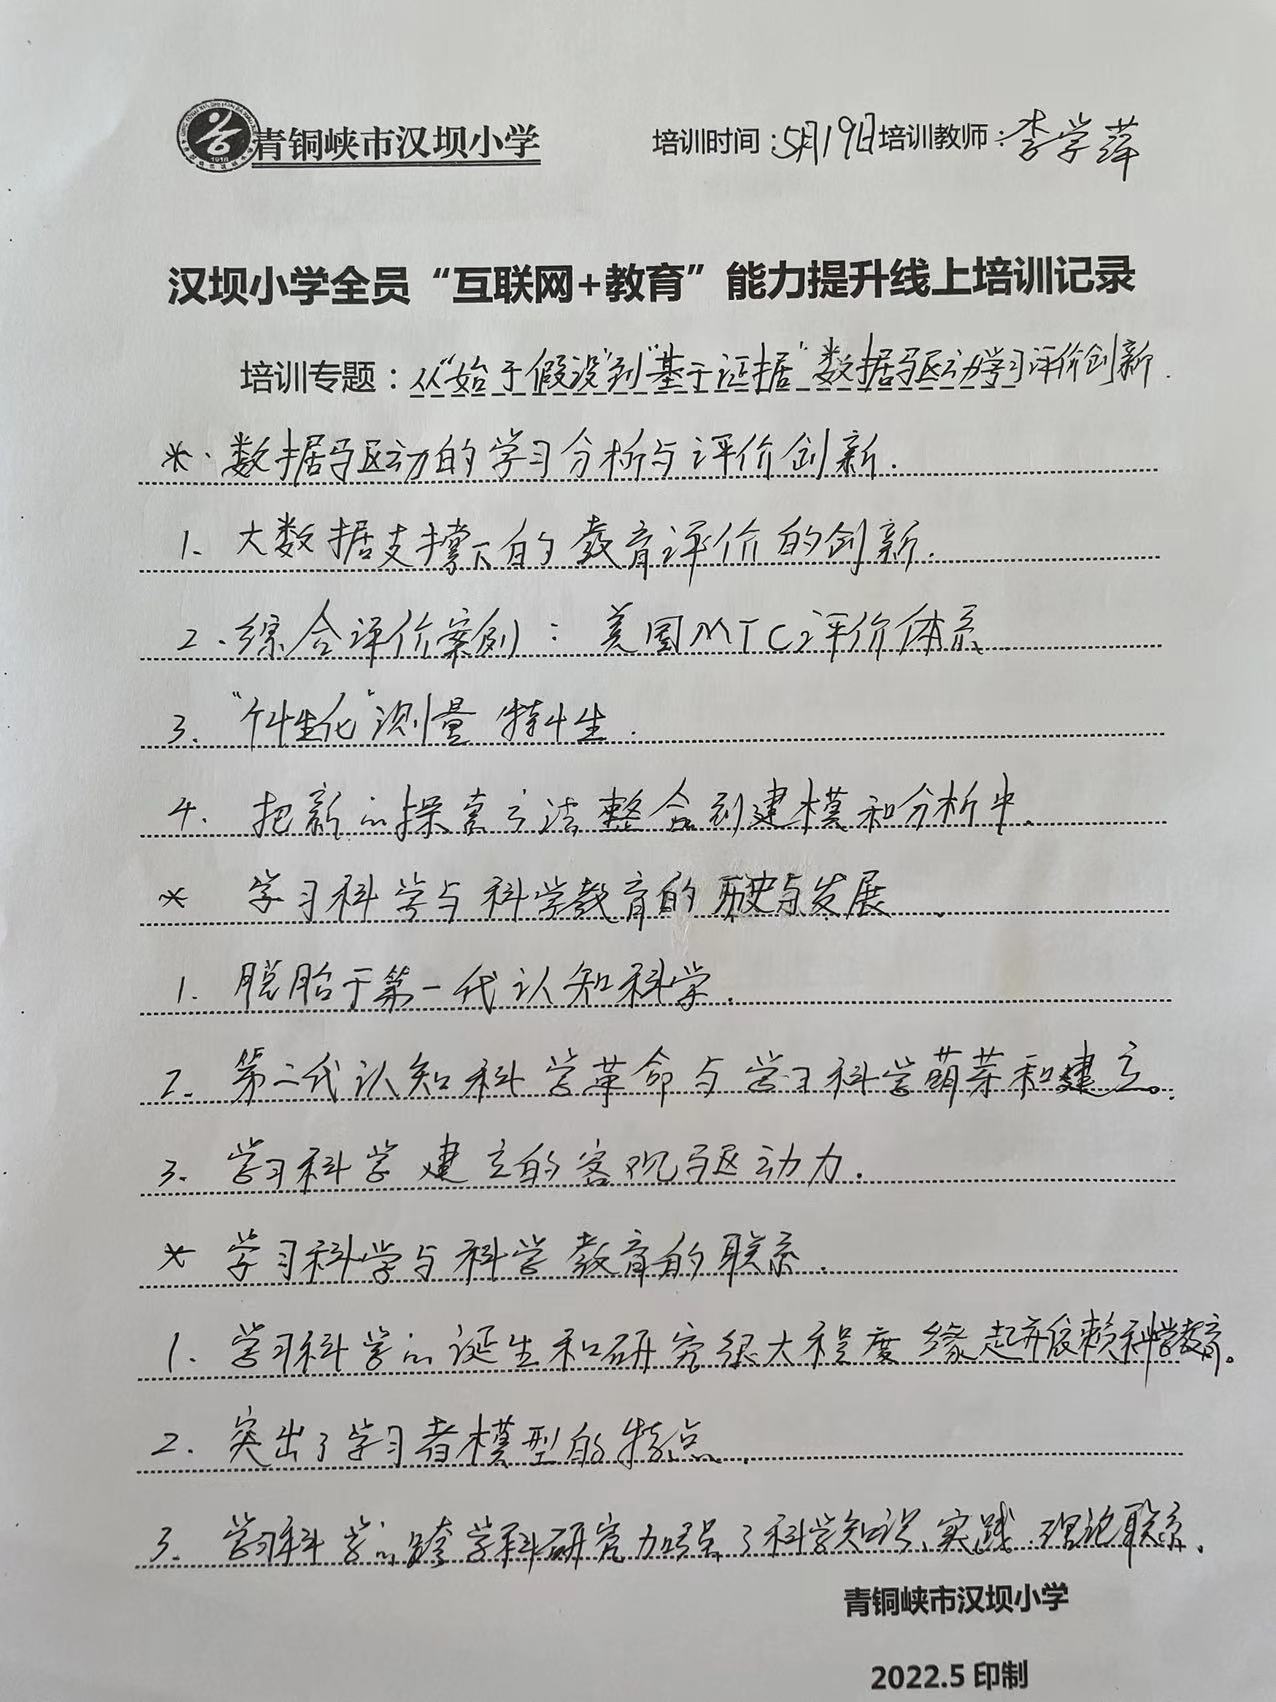 青铜峡市汉坝小学 培训时间:5月19日培训教师:李学萍
1918
汉坝小学全员“互联网+教育”能力提升线上培训记录
培训专题:从“始于假设”到“基于证据”数据驱动学习评价创新.
*.数据驱动的学习分析与评价创新.
1、大数据支撑下的教育评价的创新.
2、综合评价案例:美国MTC评价体系
3、“个性化”测量特性.
4、把新的探索方法整合到建模和分析中.
* 学习科学与科学教育的历史与发展.
1、脱胎于第一代认知科学.
2、第二代认知科学革命与学习科学萌芽和建立。
3、学习科学建立的客观驱动力.
* 学习科学与科学教育的联系.
1、学习科学的诞生和研究很大程度缘起并依赖科学教育。
2、突出了学习者模型的特点.
3、学习科学的跨学科研究加强了科学知识、实践、理论联系.
青铜峡市汉坝小学
2022.5 印制